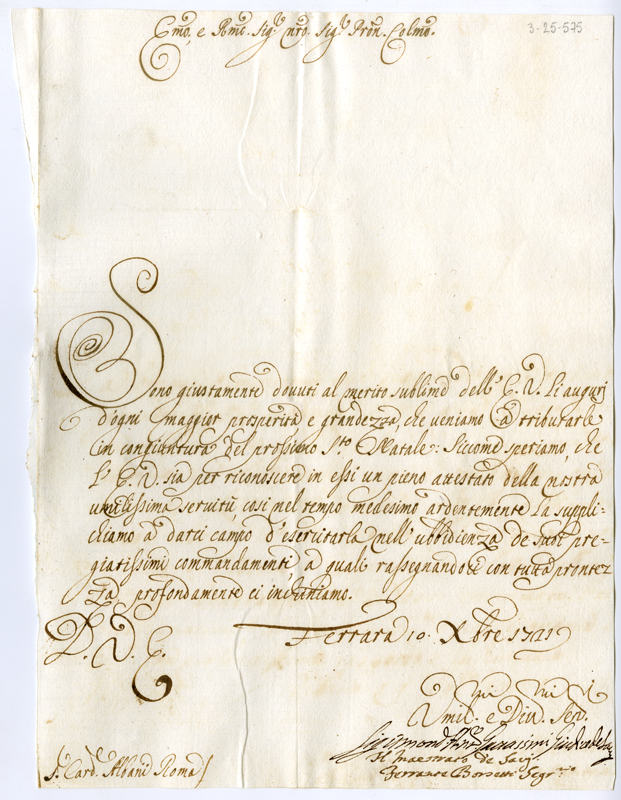 Emo, e Rmo. Sigr nro. Sigr Pron. Colmo.
3-25-575
Sono giustamente dovuti al merito sublime dell' E. V. li augurj
d'ogni maggior prosperità e grandezza, che veniamo a tributarle
in congiuntura del prossimo Sto Natale: Siccome speriamo, che
l' E. V. sia per riconoscere in essi un pieno attestato della nostra
umilissima servitù, così nel tempo medesimo ardentemente la suppli=
chiamo a darci campo d'esercitarla nell' ubbidienza de suoi pre-
giatissimi commandamenti, a quali rassegnandoci con tutta prontez
za, profondamente ci inchiniamo.
D. V. E.
Ferrara 10. Xbre 1721
Umil. e Div. Ser.
Il Maestrato de Savj
Ferrante Borsetti Segr.
Sr. Card. Albani Roma